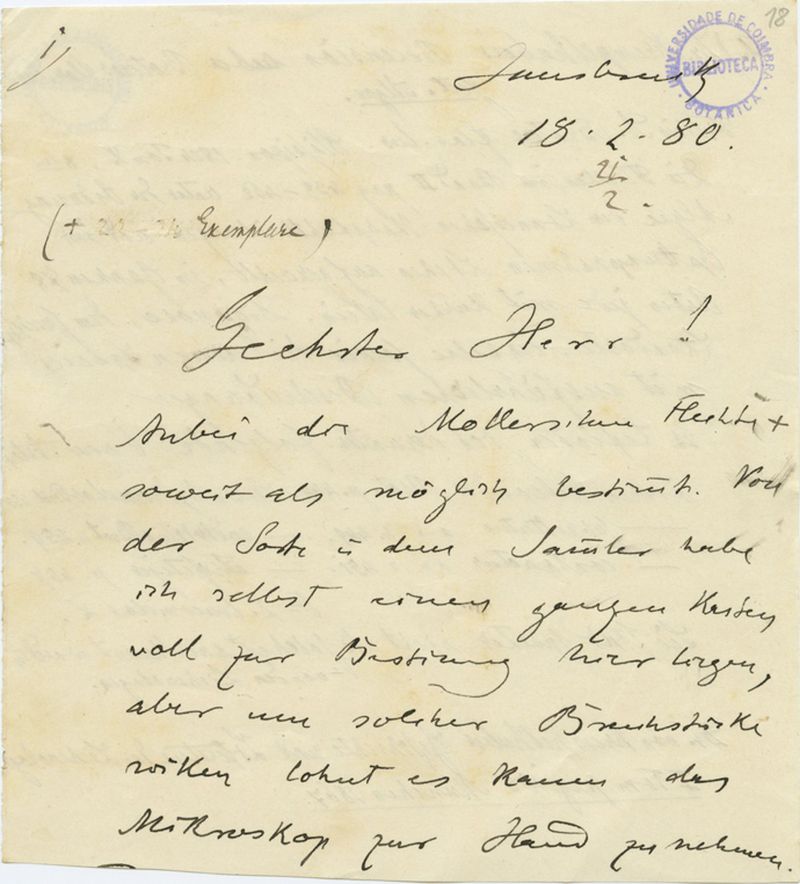 18
UNIVERSIDADE DE COIMBRA
BIBLIOTECA
BOTANICA
Innsbruck
18. 2. 80.
21/2.
(+ Exemplare)
Geehrter Herr!
Anbei die Mollerschen Flechten
soweit als möglich bestimt. Von
der Sorte u dem Samler habe
ich selbst einen ganzen Kasten
voll zur Bestimung hier liegen,
aber um solcher Bruchstücke
willen lohnt es kaum das
Mikroskop zur Hand zu nehmen.